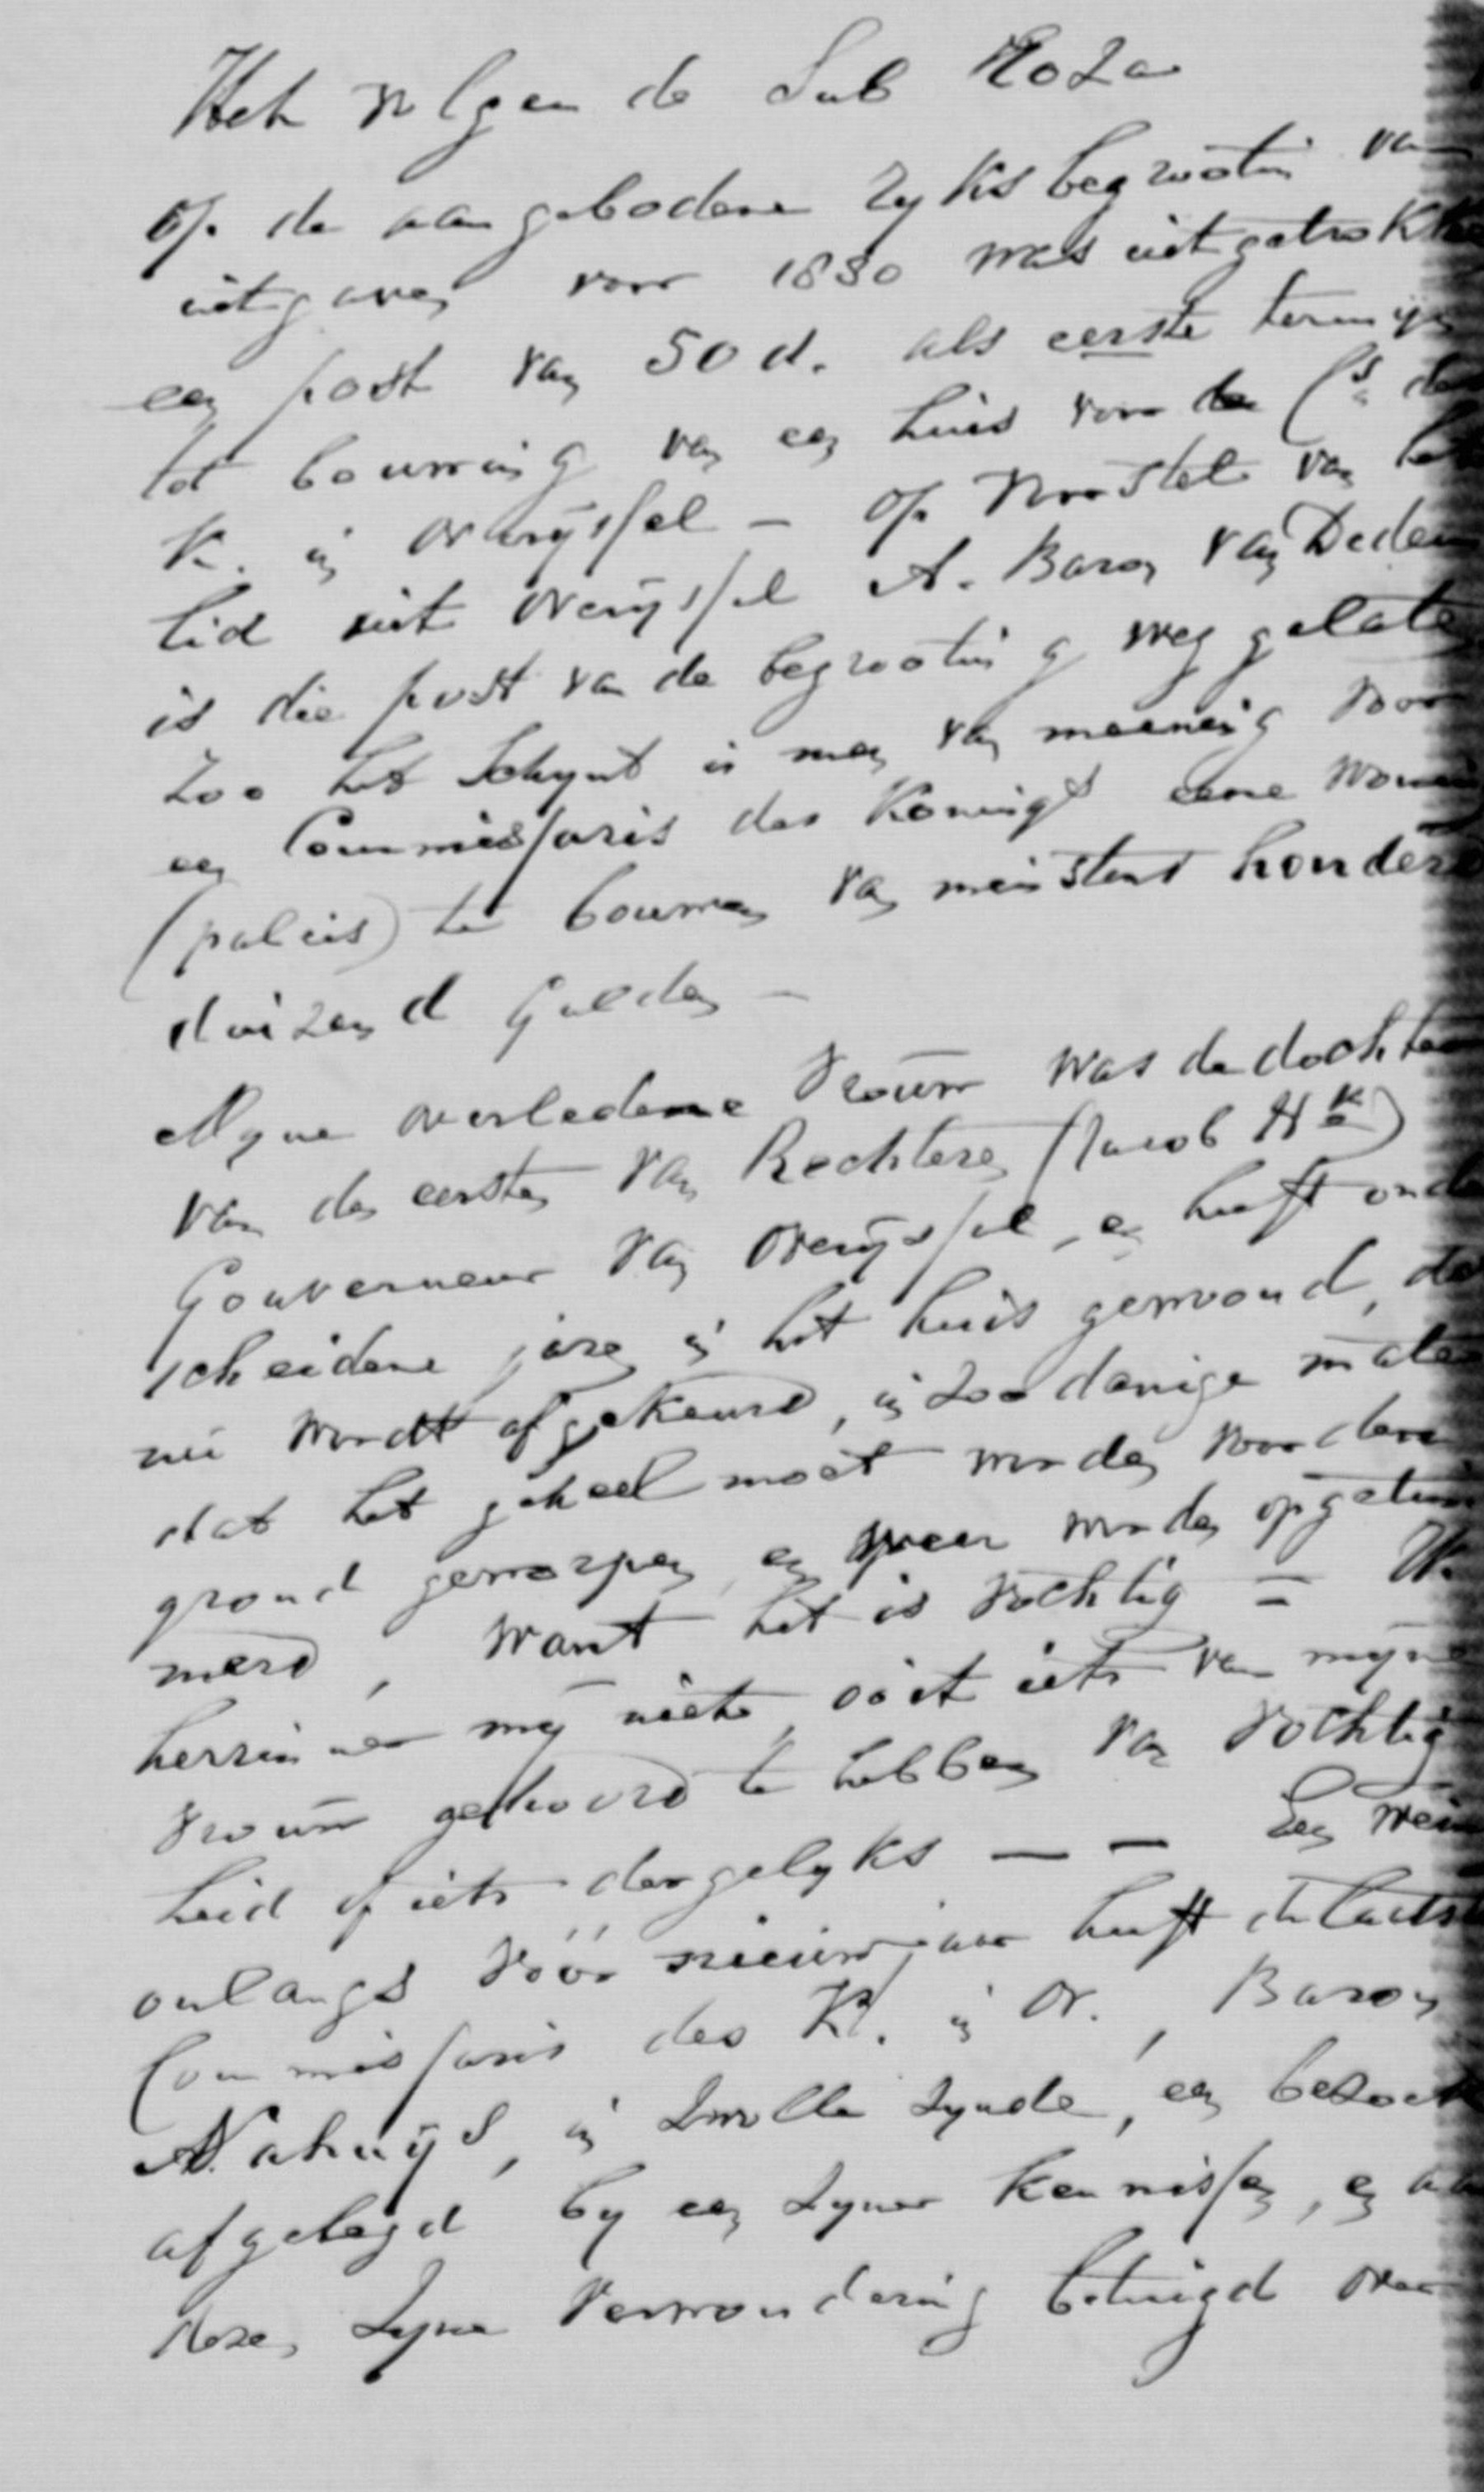 Het volgende Sub Roza
op de aangebodene Ryksbegrooting van
uitgaven voor 1880 was uitgetrokke
een post van 50 d. als eerste termijn
tot bouwing van een huis voor de Cs des
K. in Overijssel — op voorstel van het
lid uit Overijssel A. Baron van Dedem
is die post van de begrooting weg gelate
Zoo het Schynt is men van meening voor
een Commissaris des Konings eene Wonin
(paleis) te bouwen van meistens honderd
duizend Gulden —
Myne overledene Vrouw was de dochter
van den eersten van Rechteren (Jacob Hk)
Gouverneur van Overijssel, en heeft onder
scheidene jaren in het huis gewoond, dat
nu wordt afgekeurd, in zoodanige mate
dat het geheel moet worden voor den
grond geworpen, en weer worden opgetim
merd, want het is vochtig =
herinner mij niets, ooit iets van mijne
Vrouw gehoord te hebben van vochtig
heid of iets dergelyks — — Een wein
onlangs vóór nieuwjaar heeft de laatst
Commissaris des K. in Ov., Baron
Nahuijs, in Zwolle zynde, een bezoek
afgelegd by een zyner kennissen, en aan
dezen zyne Verwondering betuigd over